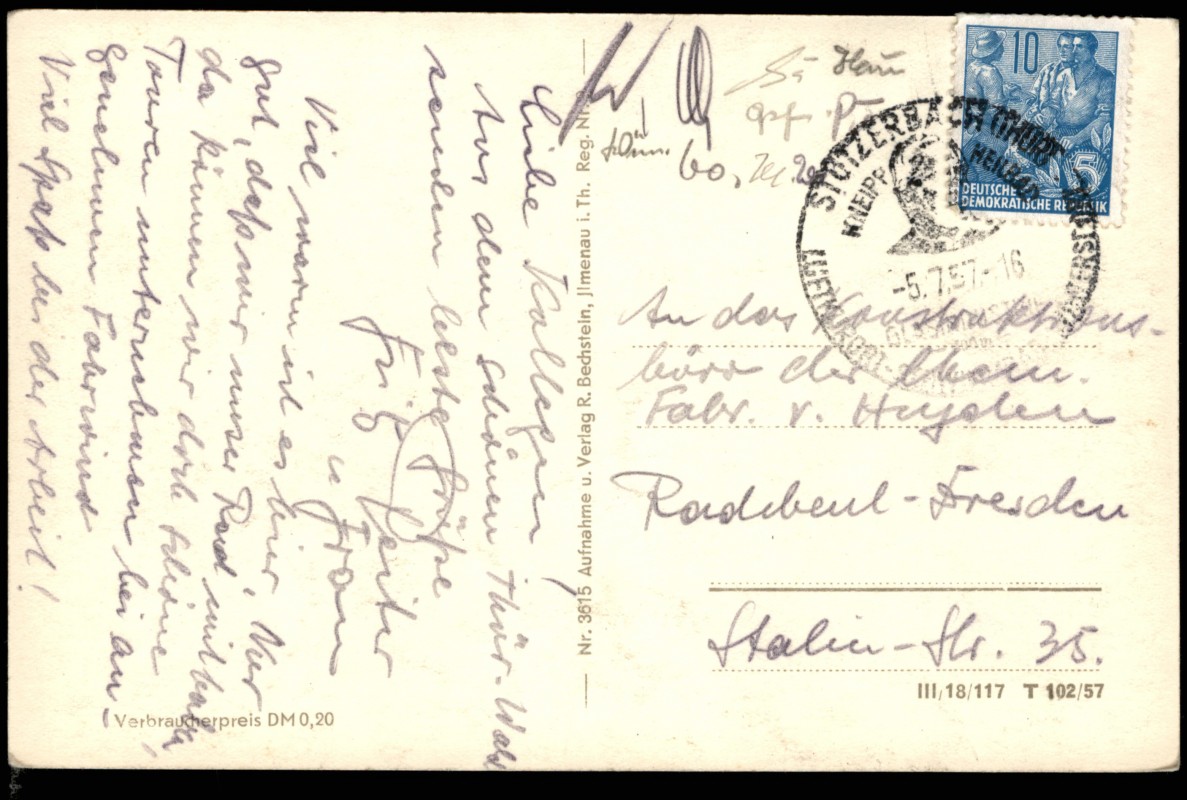 Liebe Kollegen
Aus dem schönen Thür. Wald
senden beste Grüße
Fritz Geiter
u. Frau
Viel warm ist es hier. Nur
gut, dass wir unser Rad mit haben,
da können wir doch schöne
Touren unternehmen bei an-
genehmem Fahrwind
Viel Spaß bei der Arbeit!
Verbraucherpreis DM 0,20
Nr. 3615 Aufnahme u. Verlag R. Bechstein, Jlmenau i. Th. Reg. Nr.
10
5
DEUTSCHE
DEMOKRATISCHE REPUBLIK
STÜTZERBACH (THÜR)
KNEIPP HEILBAD
-5.7.57.-16
An das Konstruktions-
büro der Chem.
Fabr. v. Heyden
Radebeul-Dresden
Stalin-Str. 35.
III/18/117 T 102/57